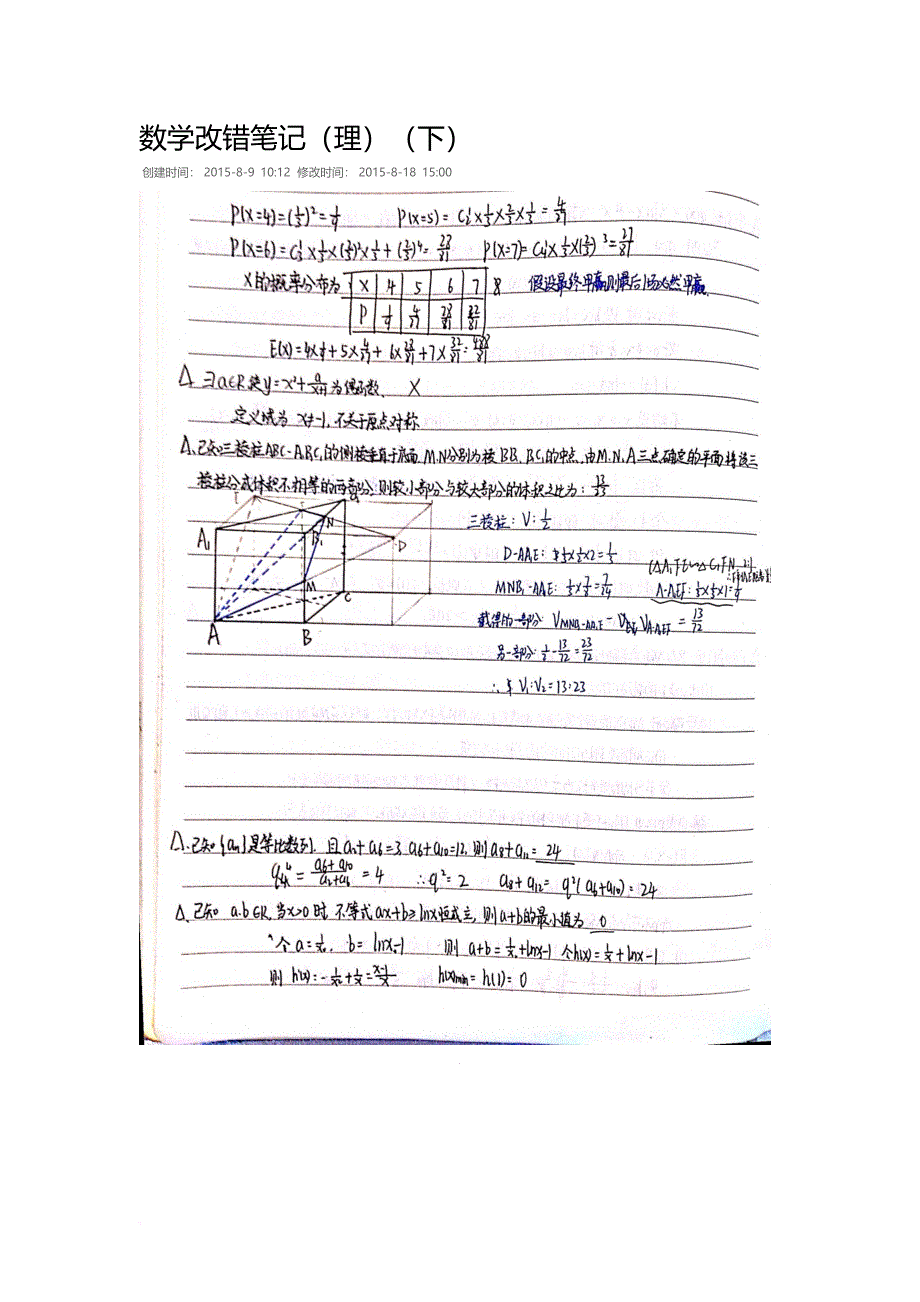 数学改错笔记（理）（下）
创建时间： 2015-8-9 10:12 修改时间： 2015-8-18 15:00
P(X=4)=(1/3)²=1/9 P(X=5)=C₂¹×1/3×2/3×1/3=4/27
P(X=6)=C₃¹×1/3×(2/3)²×1/3+(2/3)⁴=28/81 P(X=7)=C₄¹×1/3×(2/3)³=27/81
X的概率分布为 X 4 5 6 7 8 假设最终甲赢则最后1场必然甲赢.
P 1/9 4/27 28/81 32/81
E(X)=4×1/9+5×4/27+6×28/81+7×32/81=488/81
△ ∃a∈R,使y=x²+a/(x+1)为偶函数. ×
定义域为 x≠-1, 不关于原点对称
△.已知三棱柱ABC-A₁B₁C₁的侧棱垂直于底面 M.N分别为棱BB₁.B₁C₁的中点,由M.N.A三点确定的平面将该三
棱柱分成体积不相等的两部分,则较小部分与较大部分的体积之比为: 13/23
三棱柱: V: 1/2
A₁ B₁ C₁ N D M C A B
D-AA₁E:
MNB₁-AA₁E:
截得的一部分:
=13/72
另一部分: 1/2-13/72=23/72
∴ V₁:V₂=13:23
△.已知{aₙ}是等比数列. 且a₂+a₆=3. a₆+a₁₀=12, 则a₈+a₁₂= 24
q⁴=(a₆+a₁₀)/(a₂+a₆)=4 ∴q²=2 a₈+a₁₂=q²(a₆+a₁₀)=24
△.已知 a.b∈R, 当x>0时 不等式ax+b≥lnx恒成立, 则a+b的最小值为 0
个a=1/x₀, b=lnx₀-1 则 a+b=1/x₀+lnx₀-1 个h(x)=1/x+lnx-1
则 h'(x)=-1/x²+1/x=(x-1)/x² h(x)min=h(1)=0